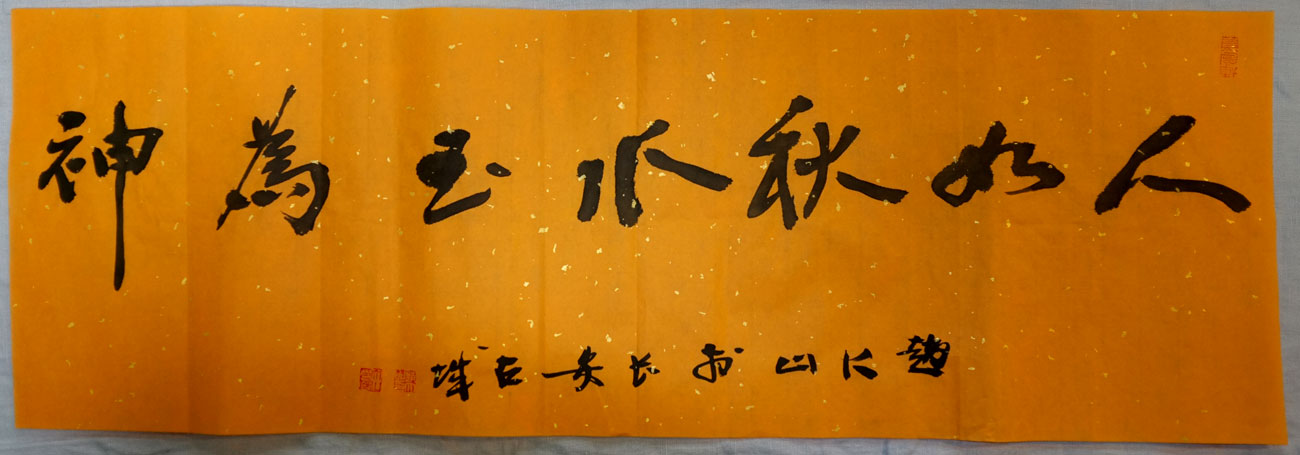 人如秋水玉為神
趙仁山書於長安古城